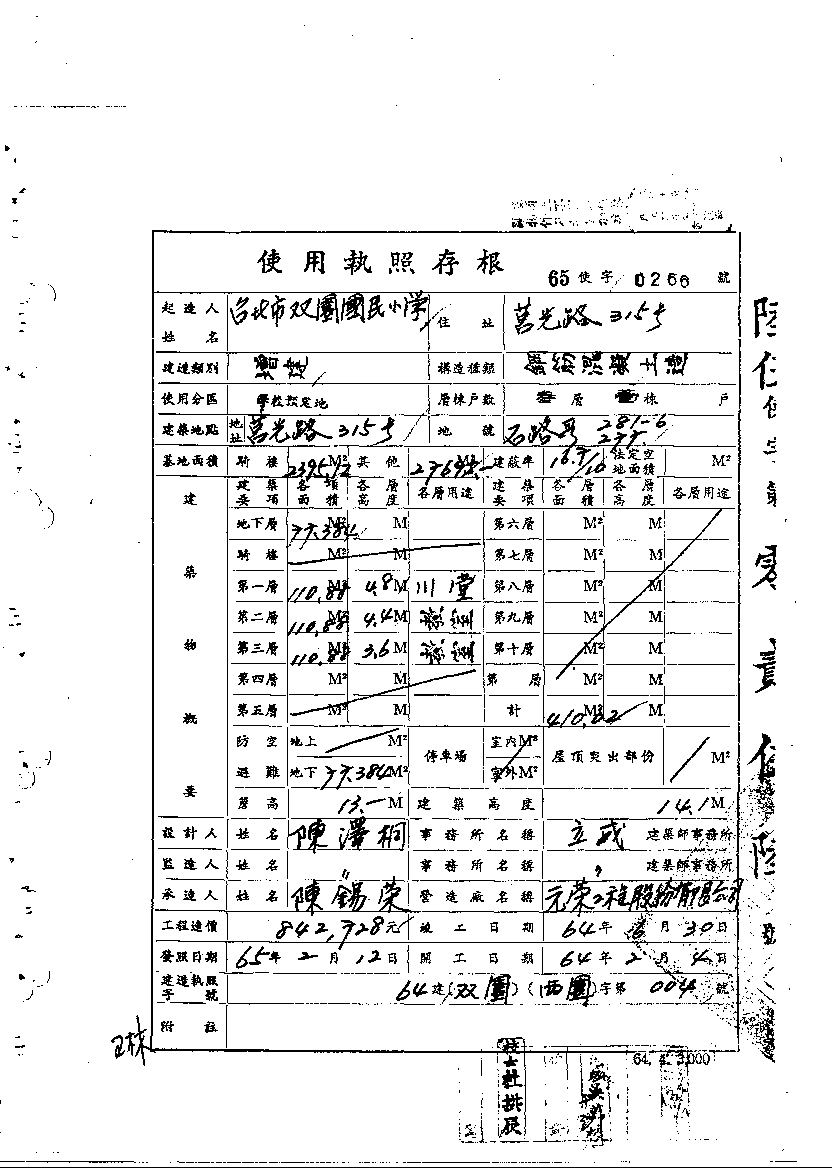 使用執照存根
65使字 0266 號
起造人姓名 台北市双園國民小学 住址 莒光路315号
建造類別 增建 構造種類 鋼筋混凝土造
使用分區 學校預定地 層棟戶數 層 棟 戶
建築地點 地址 莒光路315号 地號 281-6
基地面積 騎樓 M² 其他 建蔽率 法定空地面積 M²
建築物概要
建築要項 各項面積 各層高度 各層用途 建築要項 各層面積 各層高度 各層用途
地下層 77.384 M² M 第六層 M² M
騎樓 M² M 第七層 M² M
第一層 110.88 M² 4.8M 川堂 第八層 M² M
第二層 110.88 M² 4.4M 第九層 M² M
第三層 110.88 M² 3.6M 第十層 M² M
第四層 M² M 第 層 M² M
第五層 M² M 計 410.02 M² M
防空避難 地上 M² 停車場 室內M² 屋頂突出部份 M²
地下 77.384M² 室外M²
簷高 13.-M 建築高度 14.1M
設計人 姓名 陳澤桐 事務所名稱 立成 建築師事務所
監造人 姓名 〃 事務所名稱 〃 建築師事務所
承造人 姓名 陳錫荣 營造廠名稱 元荣工程股份有限公司
工程造價 842,728元 竣工日期 64年6月30日
發照日期 65年2月12日 開工日期 64年2月4日
建造執照字號 64建(双園)(西園)字第004號
附註
64. 4. 3,000